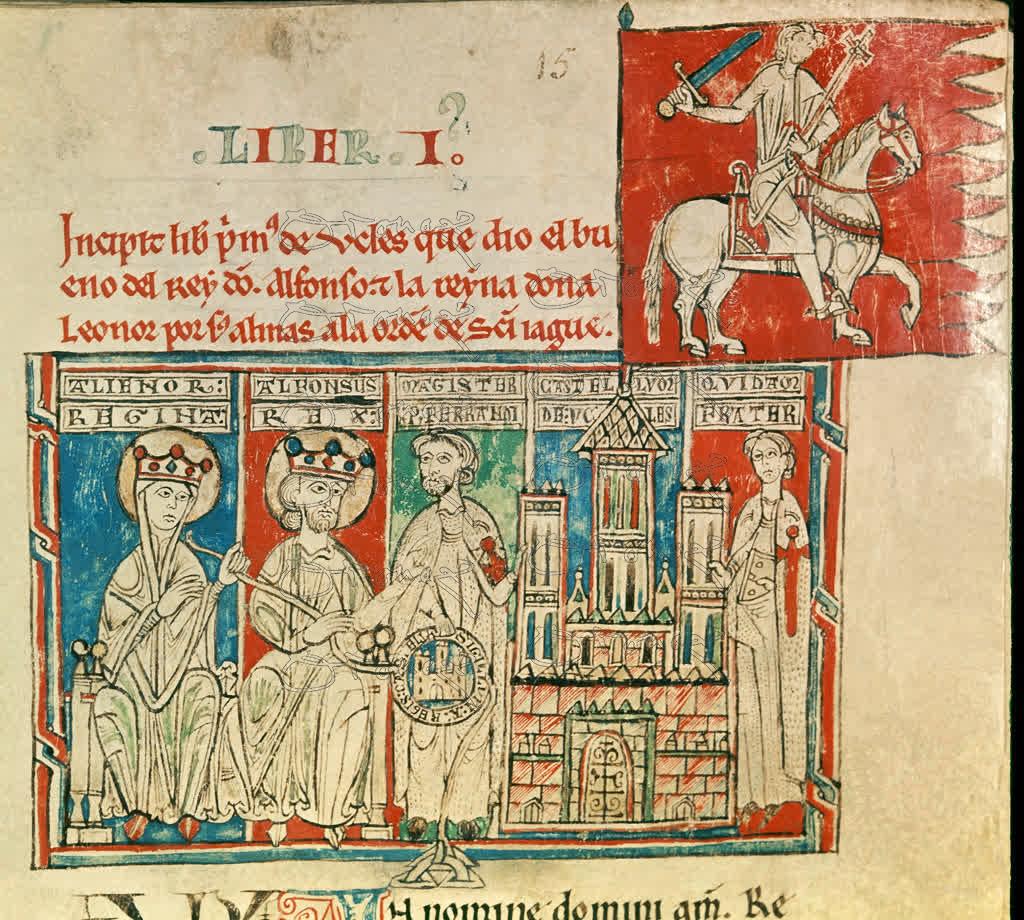 15
.LIBER.I.
Incipit lib̄ p̄im⁹ de Ucles que dio el bu
eno del Rey dō. Alfonso.⁊ la reyna dona
Leonor por s̄ almas ala ordē de Sc̄i iague.
ALIENOR:
REGINA:
ALFONSUS
REX:
MAGISTER
P. FERRANDI
CASTELLUM
DE: UCLES
QUIDAM
FRATER
SIGILLUM
REGIS
IN nomine domini am̄. Re